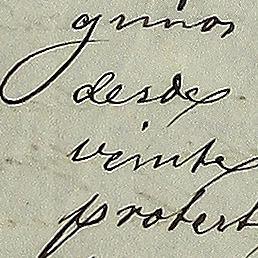 grinos
desde
veinte
protest